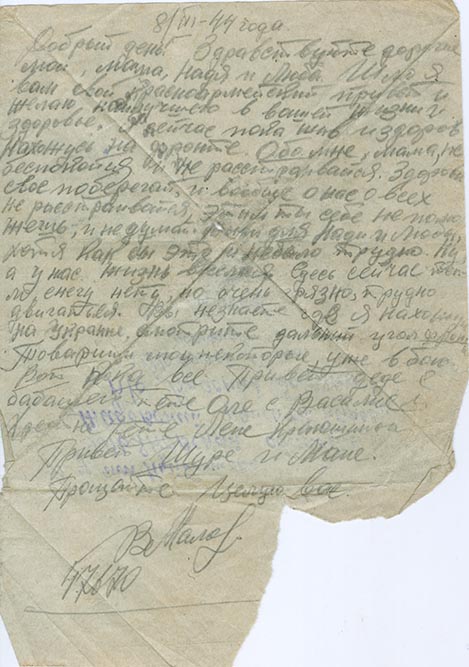 8/III-44 года
Добрый день. Здравствуйте дорогие
мои, мама, Надя и Люба. Шлю я
вам свой красноармейский привет и
желаю наилучшего в вашей жизни и
здоровье. Я сейчас пока жив и здоров
Нахожусь на фронте. Обо мне, мама, не
беспокойся и не расстраивайся. Здоровье
свое поберегай, и вообще о нас о всех
не расстраивайся, этим ты себе не помо
жешь, и не думай. для Нади и Любы,
хотя как бы это и небыло трудно. Ну
а у нас жизнь веселая Здесь сейчас теп
ло снегу нету, но очень грязно, трудно
двигаться. Вы незнаете где я нахожусь
на Украине, смотрите дальний угол
Товарищи мои некоторые, уже в бою
Вот пока все Привет деде с
бабаш тете Оле с Василием
тете Лене
Привет Шуре и Мане.
Прощайте Целую вас
В Малов
47670